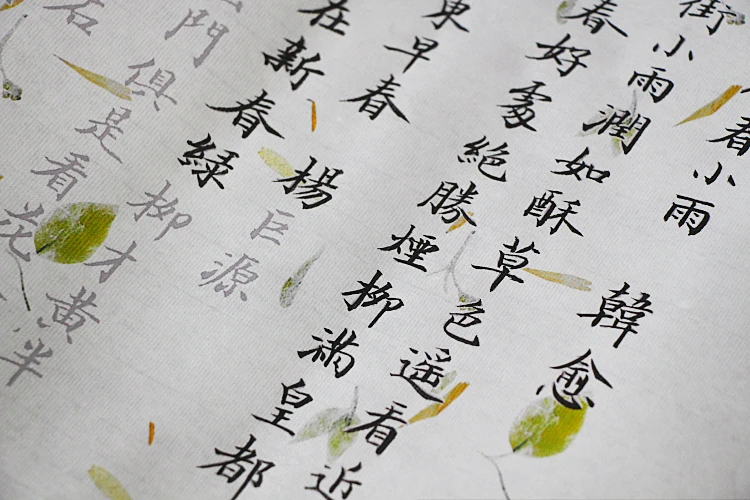 春小雨 韓愈
街小雨潤如酥草色遙看近
春好處絕勝煙柳滿皇都
東早春 楊巨源
在新春綠柳才黃半
門俱是看花